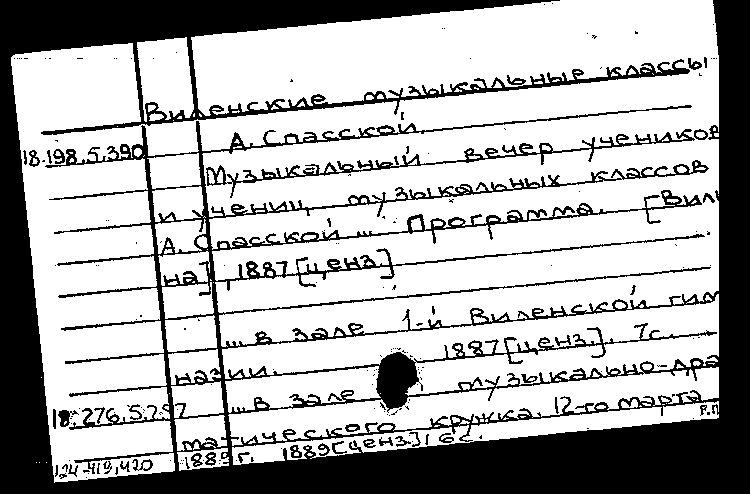 Виленские музыкальные классы
А. Спасской.
18.198.5.390
Музыкальный вечер учеников
и учениц музыкальных классов
А. Спасской ... Программа. [Виль
на], 1887 [ценз.]
... в зале 1-й Виленской гим
назии. 1887 [ценз.]. 7с.
18.276.5.257 ... в зале музыкально-дра
матического кружка. 12-го марта
1889 г. 1889 [ценз.], 6 с.
124-419,420